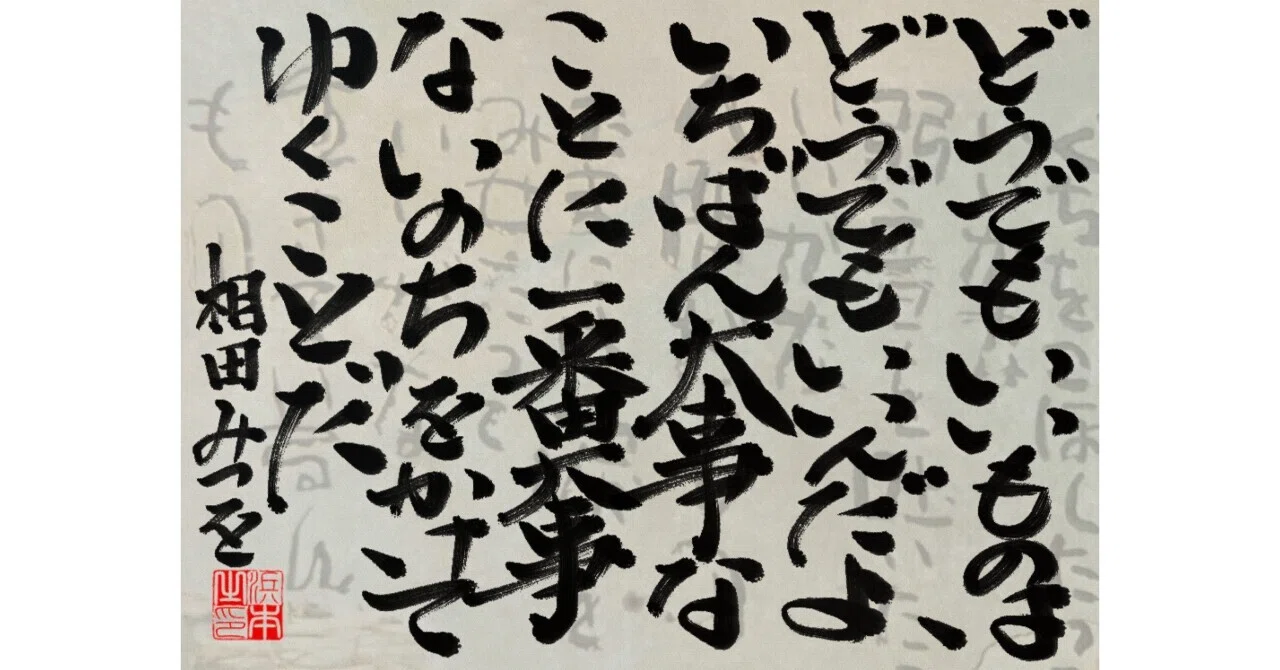 どうでもいいものは
どうでもいいんだよ、
いちばん大事な
ことに一番大事
ないのちをかけて
ゆくことだ
相田みつを
浜本之印